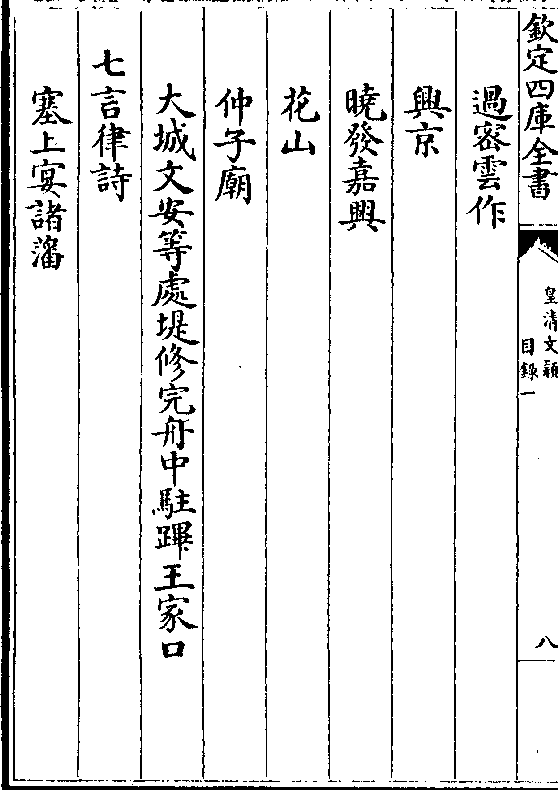 欽定四庫全書
皇清文穎
目錄一
八
過密雲作
興京
曉發嘉興
花山
仲子廟
大城文安等處堤修完舟中駐蹕王家口
七言律詩
塞上宴諸藩